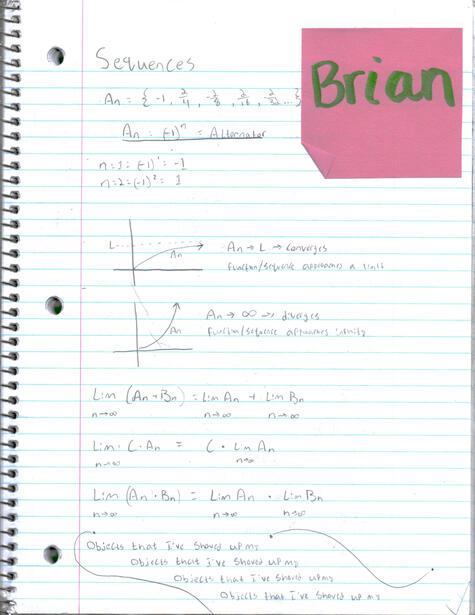 Sequences
Brian
An = { -1, 2/4, -2/8, 2/16, 2/32 ... }
An = (-1)^n = Alternator
n=1 = (-1)^1 = -1
n=2 = (-1)^2 = 1
L
An
An → L → converges
function/sequence approaches a limit
An
An → ∞ → diverges
function/sequence approaches infinity
Lim (An + Bn) = Lim An + Lim Bn
n→∞ n→∞ n→∞
Lim · C · An = C · Lim An
n→∞ n→∞
Lim (An · Bn) = Lim An · Lim Bn
n→∞ n→∞ n→∞
Objects that I've shoved up my
Objects that I've shoved up my
Objects that I've shoved up my
Objects that I've shoved up my